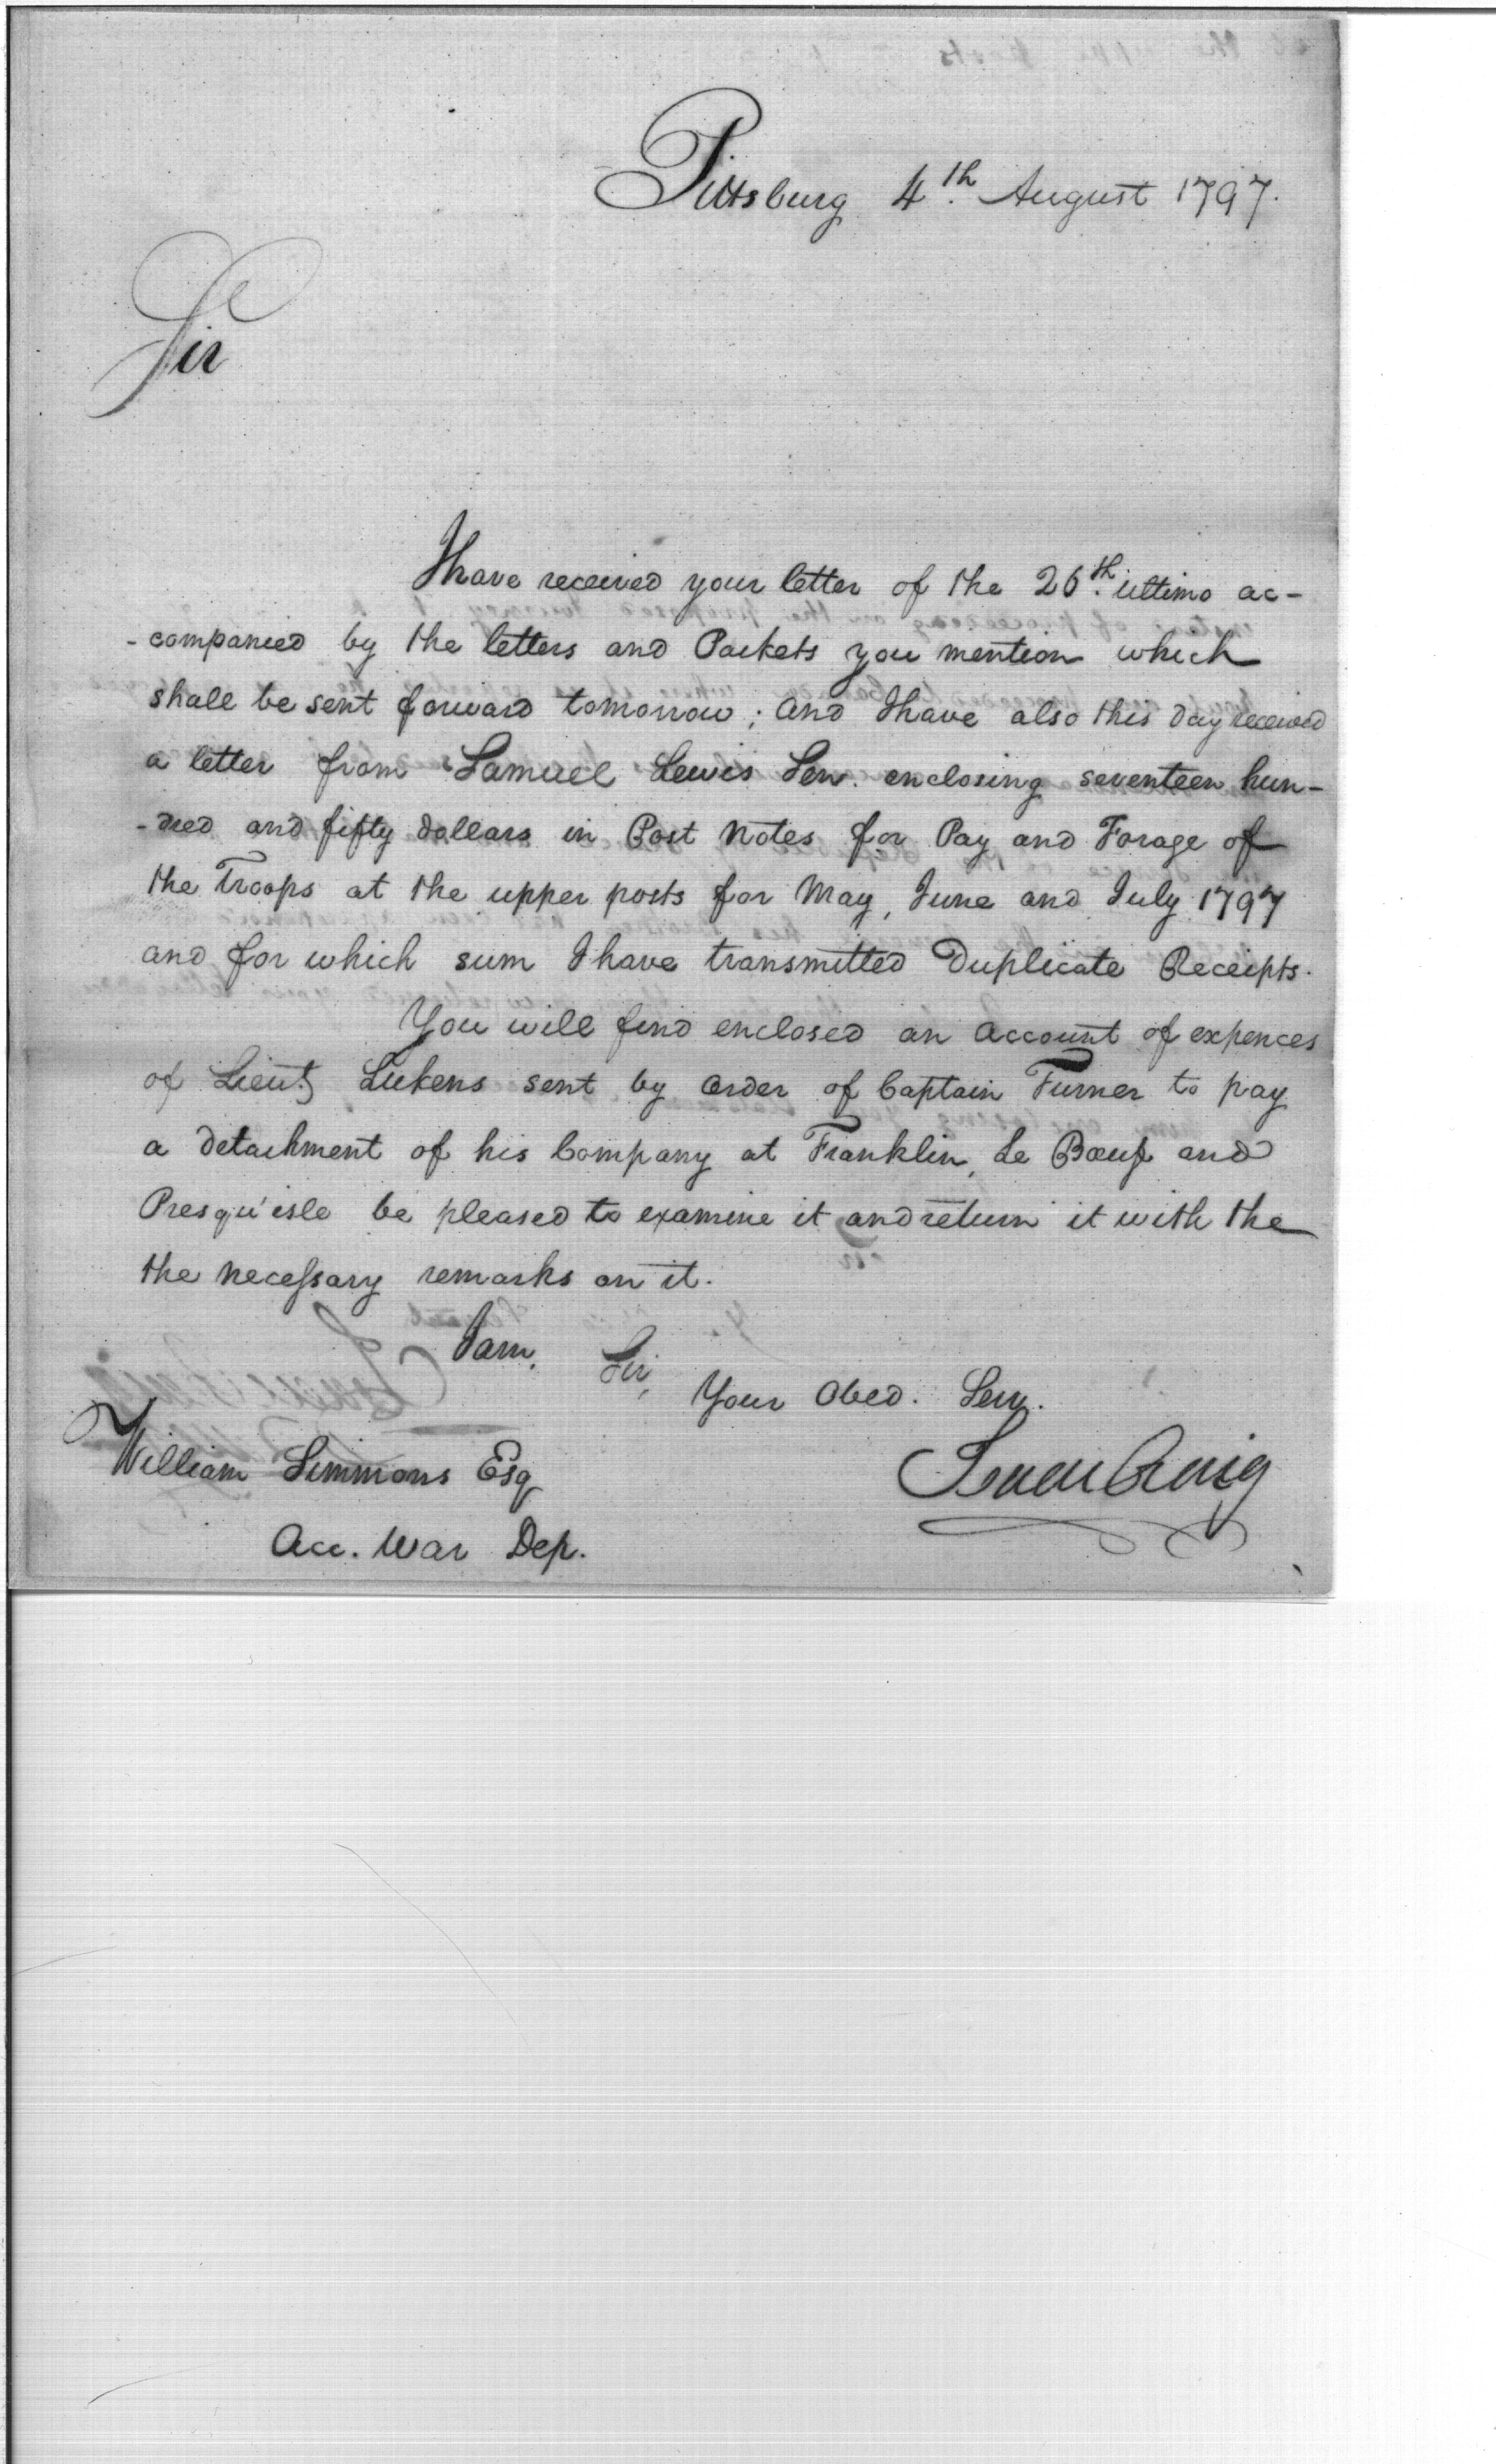 Pittsburg 4th. August 1797.
Sir
I have received your letter of the 26th. ultimo ac-
-companied by the letters and Packets you mention which
shall be sent forward tomorrow; and I have also this day received
a letter from Samuel Lewis Sen. enclosing seventeen hun-
-dred and fifty dollars in Post Notes for Pay and Forage of
the Troops at the upper posts for May, June and July 1797
and for which sum I have transmitted Duplicate Receipts.
You will find enclosed an account of expences
of Lieut. Lukens sent by order of Captain Turner to pay
a detachment of his Company at Franklin, Le Bœuf and
Presqu'isle be pleased to examine it and return it with the
the necessary remarks on it.
I am, Sir,
Your Obed. Serv.
Isaac Craig
William Simmons Esq
Acc. War Dep.